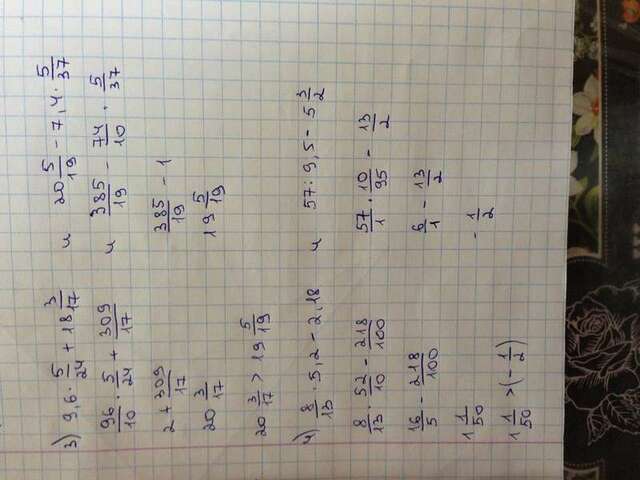 3) 9,6 · 5/24 + 18 3/17 и 20 5/19 - 7,4 · 5/37
96/10 · 5/24 + 309/17 и 385/19 - 74/10 · 5/37
2 + 309/17 385/19 - 1
20 3/17 19 5/19
20 3/17 > 19 5/19
4) 8/13 · 5,2 - 2,18 и 57 : 9,5 - 5 3/2
8/13 · 52/10 - 218/100 57/1 · 10/95 - 13/2
16/5 - 218/100 6/1 - 13/2
1 1/50 - 1/2
1 1/50 > (- 1/2)